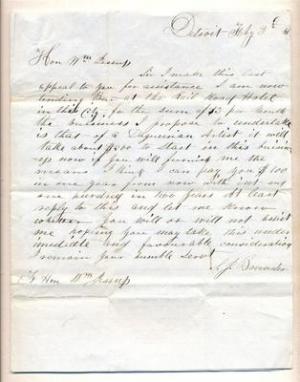 Detroit Feby 3
Hon Wm Jessup
Sir I make this last
appeal to you for assistance I am now
tending Bar at the Rail Road Hotel
in this City for the sum of $3 per month
the buisiness I propose to undertake
is that of a Daguerian Artist it will
take about $200 to start in this buisin
ess now if you will furnish me the
means I think I can pay you $100
in one year from now with
one hundred in two years at least
reply to this and let me know
wether you will or will not assist
me hoping you may take this under
imediate and favourable consideration
I remain your humble Servt
To Hon Wm Jessup